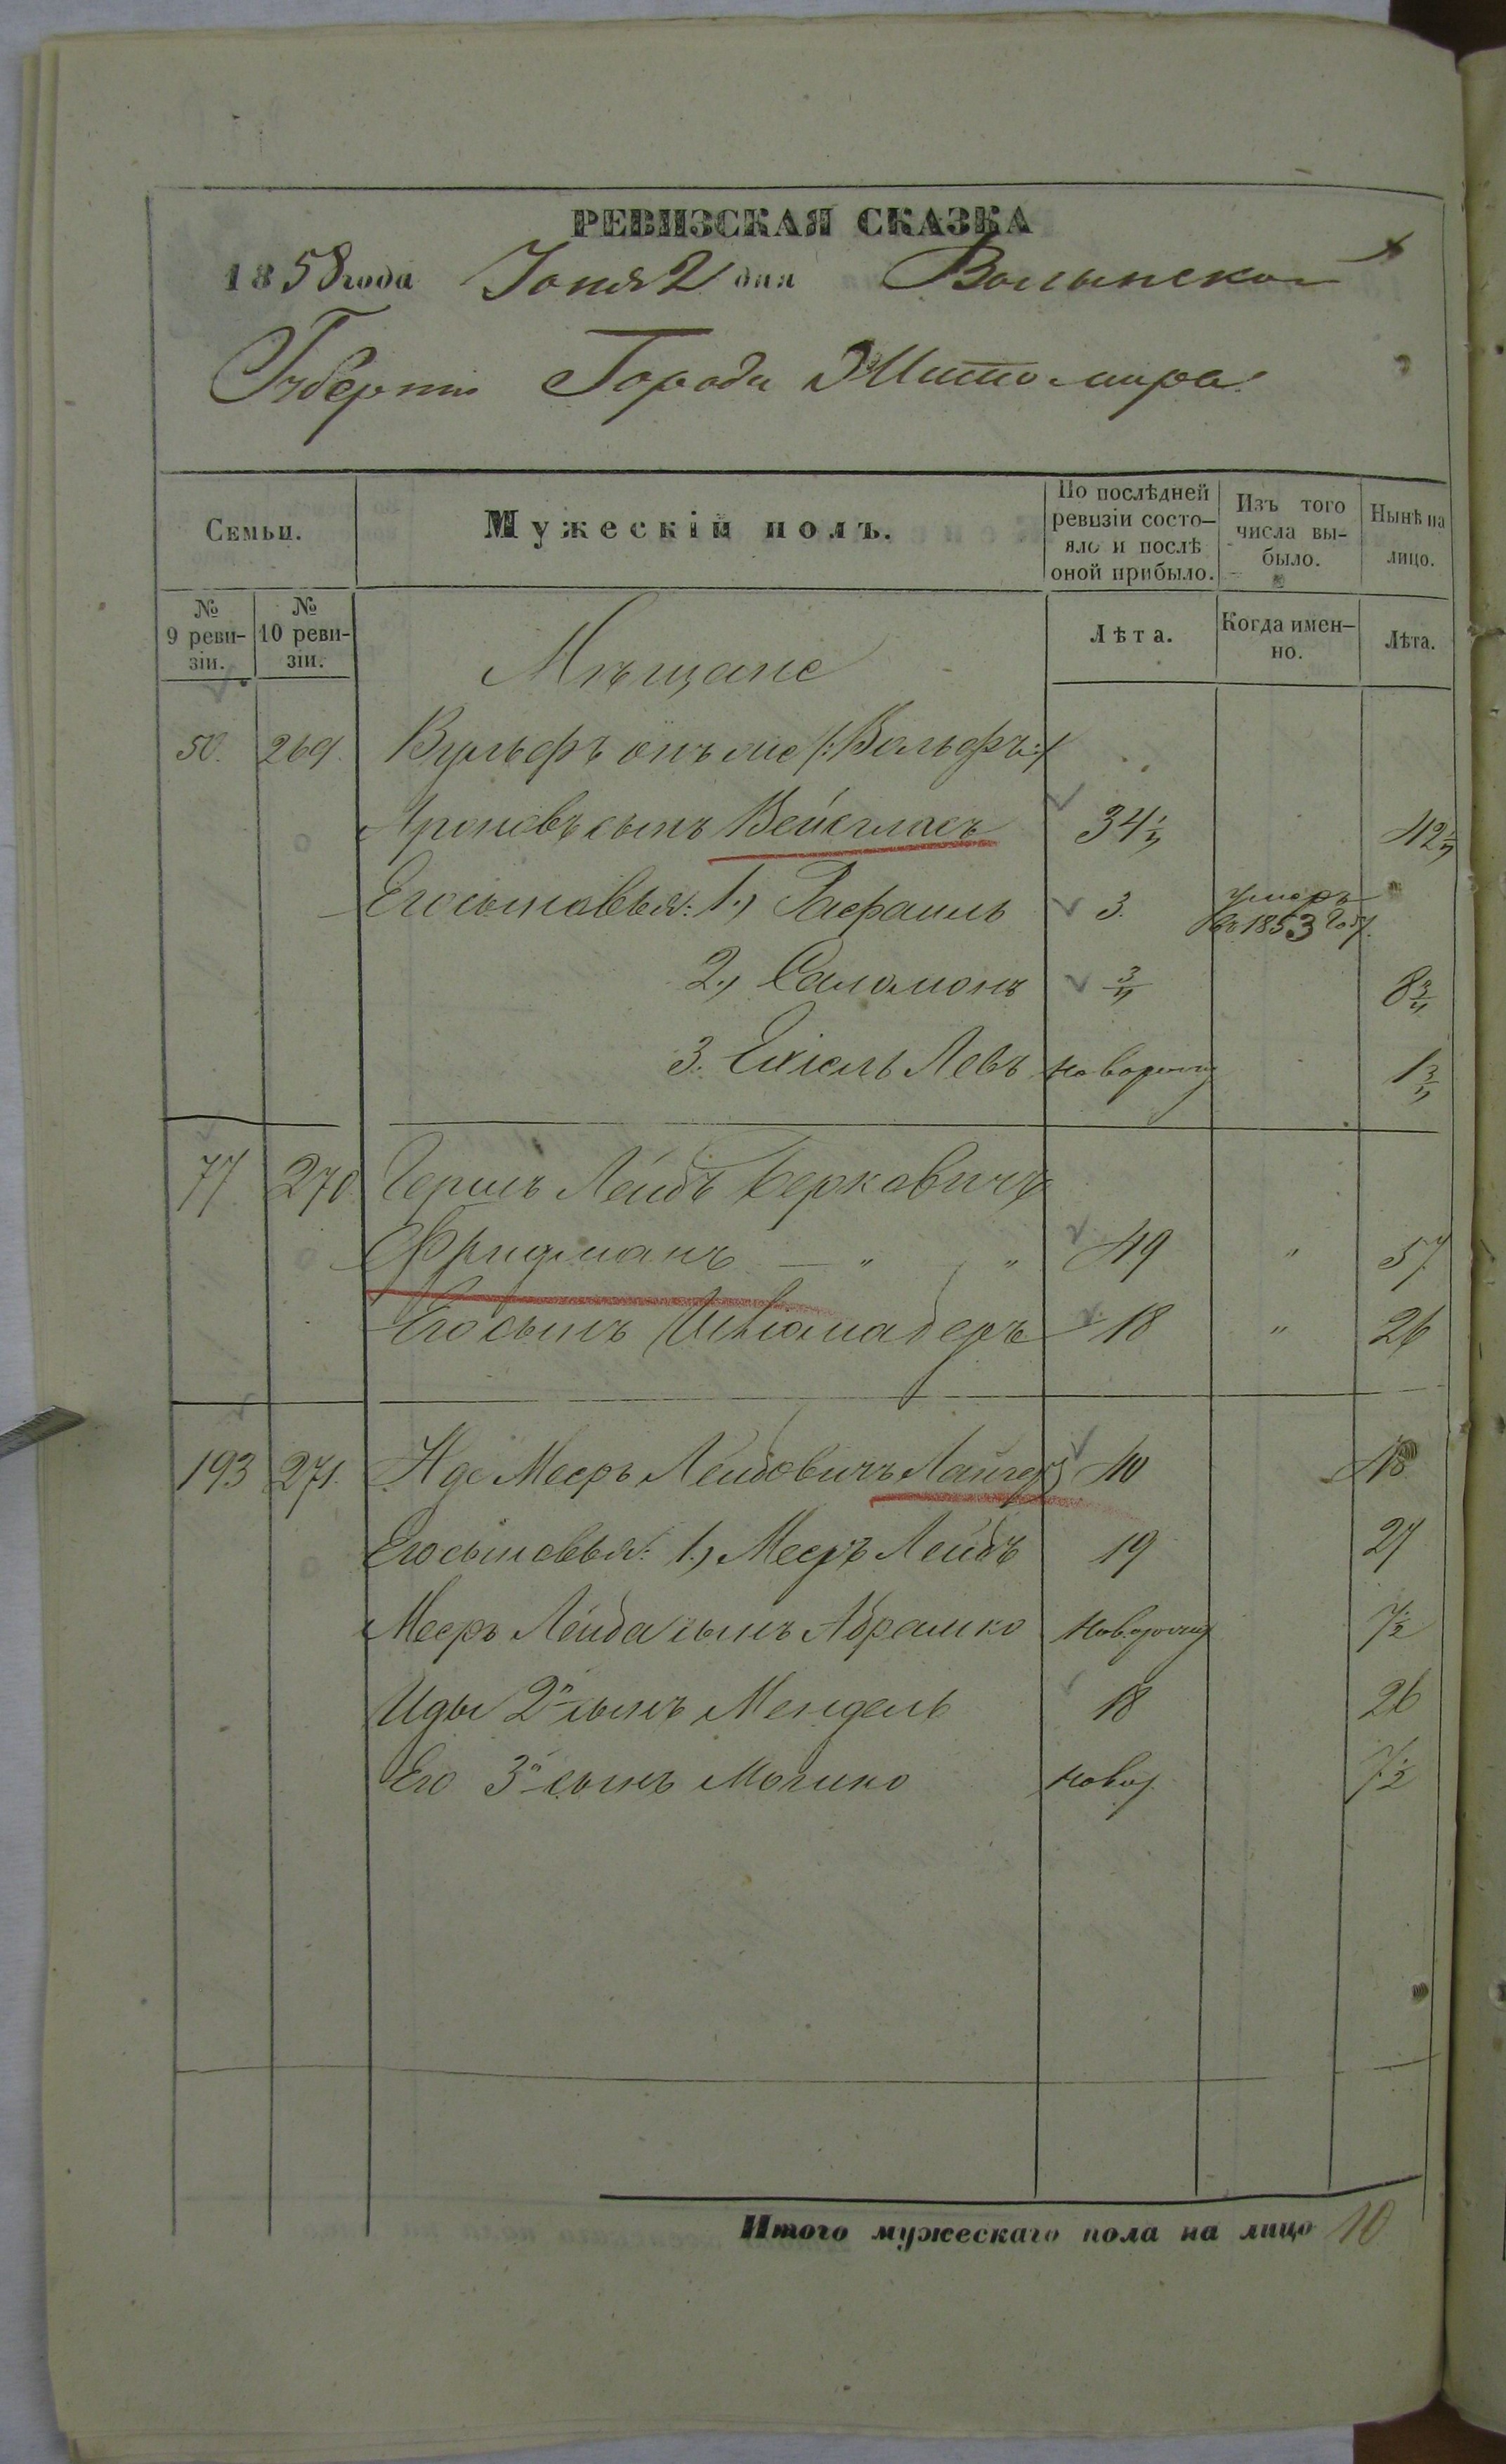 РЕВИЗСКАЯ СКАЗКА
1858 года Іюня 2 дня Волынской
Губерніи Города Житомира
Семьи.
Мужескій полъ.
По послѣдней ревизіи состо-яло и послѣ оной прибыло.
Изъ того числа вы-было.
Нынѣ на лицо.
№ 9 реви-зіи.
№ 10 реви-зіи.
Лѣта.
Когда имен-но.
Лѣта.
Мѣщане
50. 269. Вульфъ онъ же /:Вольфъ:/
Ароновъ сынъ Вейсгласъ 34 42
Его сыновья: 1., Рафаилъ 3. умеръ въ 1853 году
2., Саломонъ 8
3. Ехіель Левъ новорожд 1
77 270 Гершъ Лейбъ Берковичъ
Фридманъ — " " 49 " 57
Его сынъ 18 " 26
193 271. Мееръ Лейбовичъ 40 48
Его сыновья: 1., Мееръ Лейбъ 19 27
Мееръ Лейба сынъ Абрамко новорожд 7½
Иды 2й сынъ Мендель 18 26
Его 3й сынъ Мошко новор. 7½
Итого мужескаго пола на лицо 10